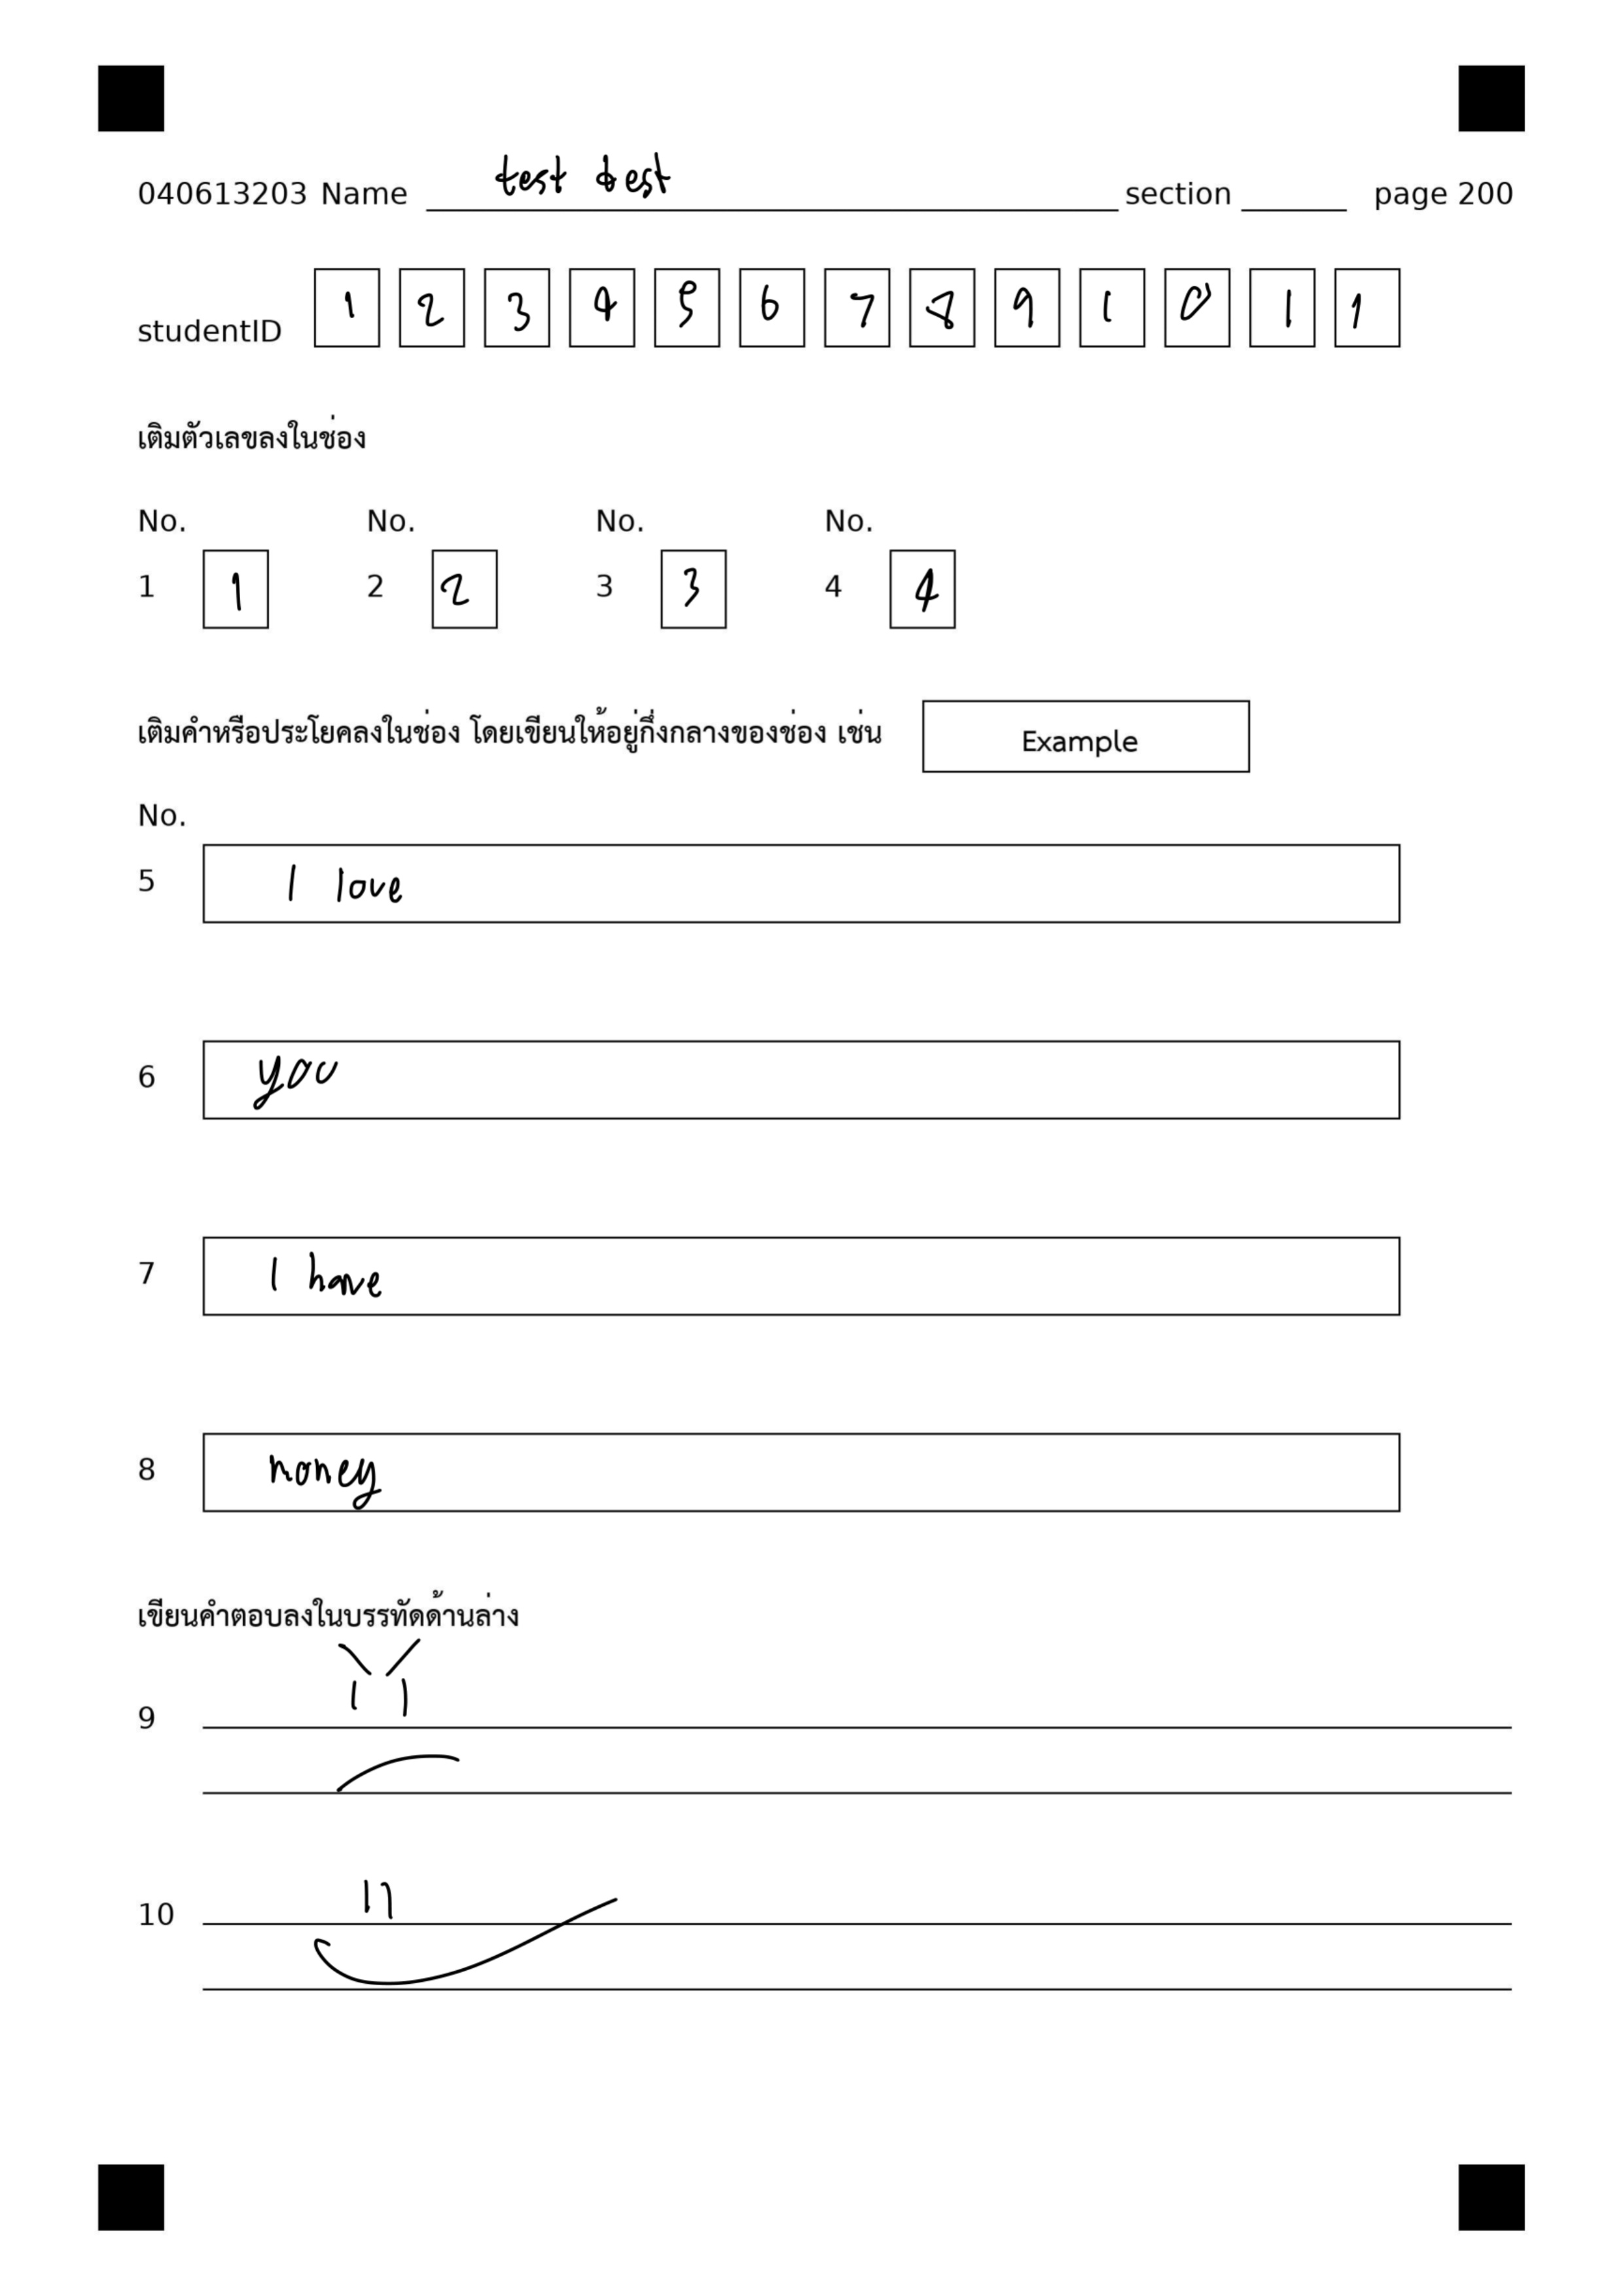 040613203 Name test test section page 200
studentID 1 2 3 4 5 6 7 8 9 1 0 1 1
เติมตัวเลขลงในช่อง
No. No. No. No.
1 1 2 2 3 3 4 4
เติมคำหรือประโยคลงในช่อง โดยเขียนให้อยู่กึ่งกลางของช่อง เช่น Example
No.
5 I love
6 you
7 I have
8 money
เขียนคำตอบลงในบรรทัดด้านล่าง
9
10